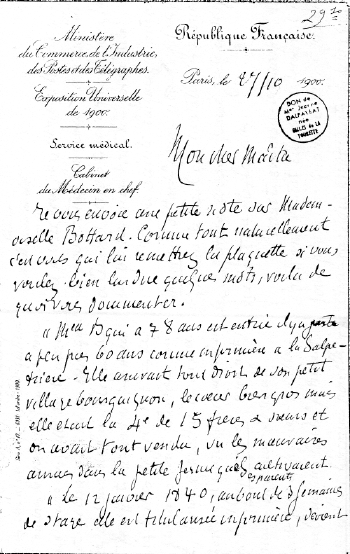 29 10
Ministère
du Commerce, de l'Industrie,
des Postes et des Télégraphes.
Exposition Universelle
de 1900.
Service médical.
Cabinet
du Médecin en chef.
République Française.
Paris, le 27/10 1900.
DON de
Mme Jeanne
DALPAYRAT
née
GILLES de la
TOURETTE
Mon cher Maître
Je vous envoie une petite note sur Madem-
oiselle Bottard. Comme tout naturellement
c'est vous qui lui remettrez la plaquette si vous
voulez bien lui dire quelques mots, voilà de
quoi vous documenter.
"Melle B qui a 78 ans est entrée il y a
à peu près 60 ans comme infirmière à la Salpe-
trière. Elle arrivait tout droit de son petit
village bourguignon, le cœur bien gros mais
elle était la 4e de 15 frères et sœurs et
on avait tout vendu, vu les mauvaises
années dans la petite ferme que cultivaient
ses parents
"Le 12 janvier 1840, au bout de 3 semaines
de stage elle est titularisée infirmière, devient